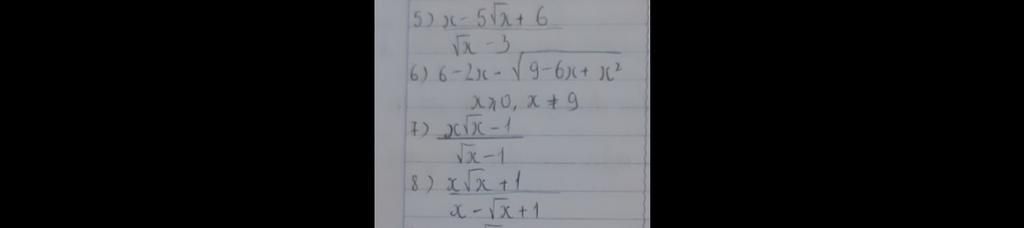 5) x - 5√x + 6
√x - 3
6) 6 - 2x - √9 - 6x + x²
x ≥ 0, x ≠ 9
7) x√x - 1
√x - 1
8) x√x + 1
x - √x + 1